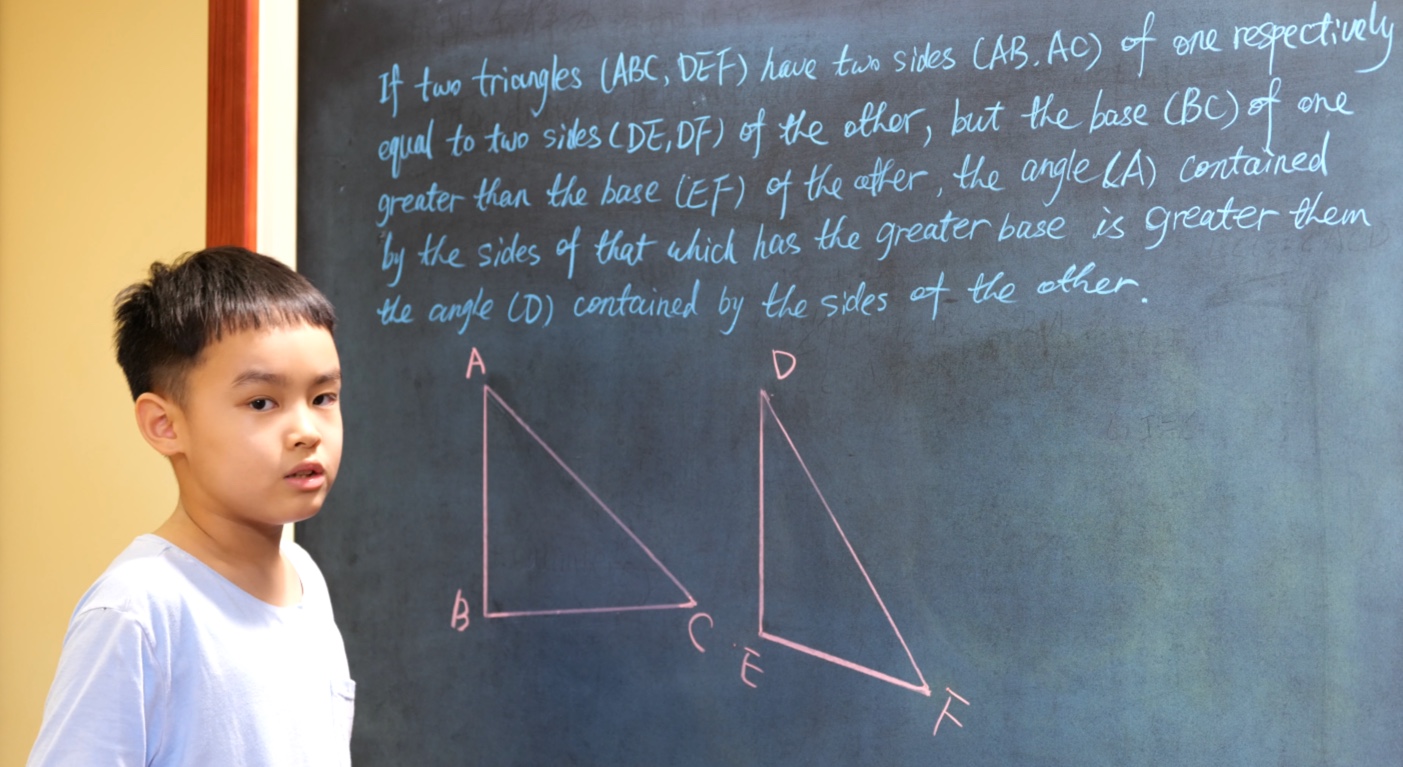 If two triangles (ABC, DEF) have two sides (AB. AC) of one respectively
equal to two sides (DE, DF) of the other, but the base (BC) of one
greater than the base (EF) of the other, the angle (A) contained
by the sides of that which has the greater base is greater them
the angle (D) contained by the sides of the other.
A D
B C
E F